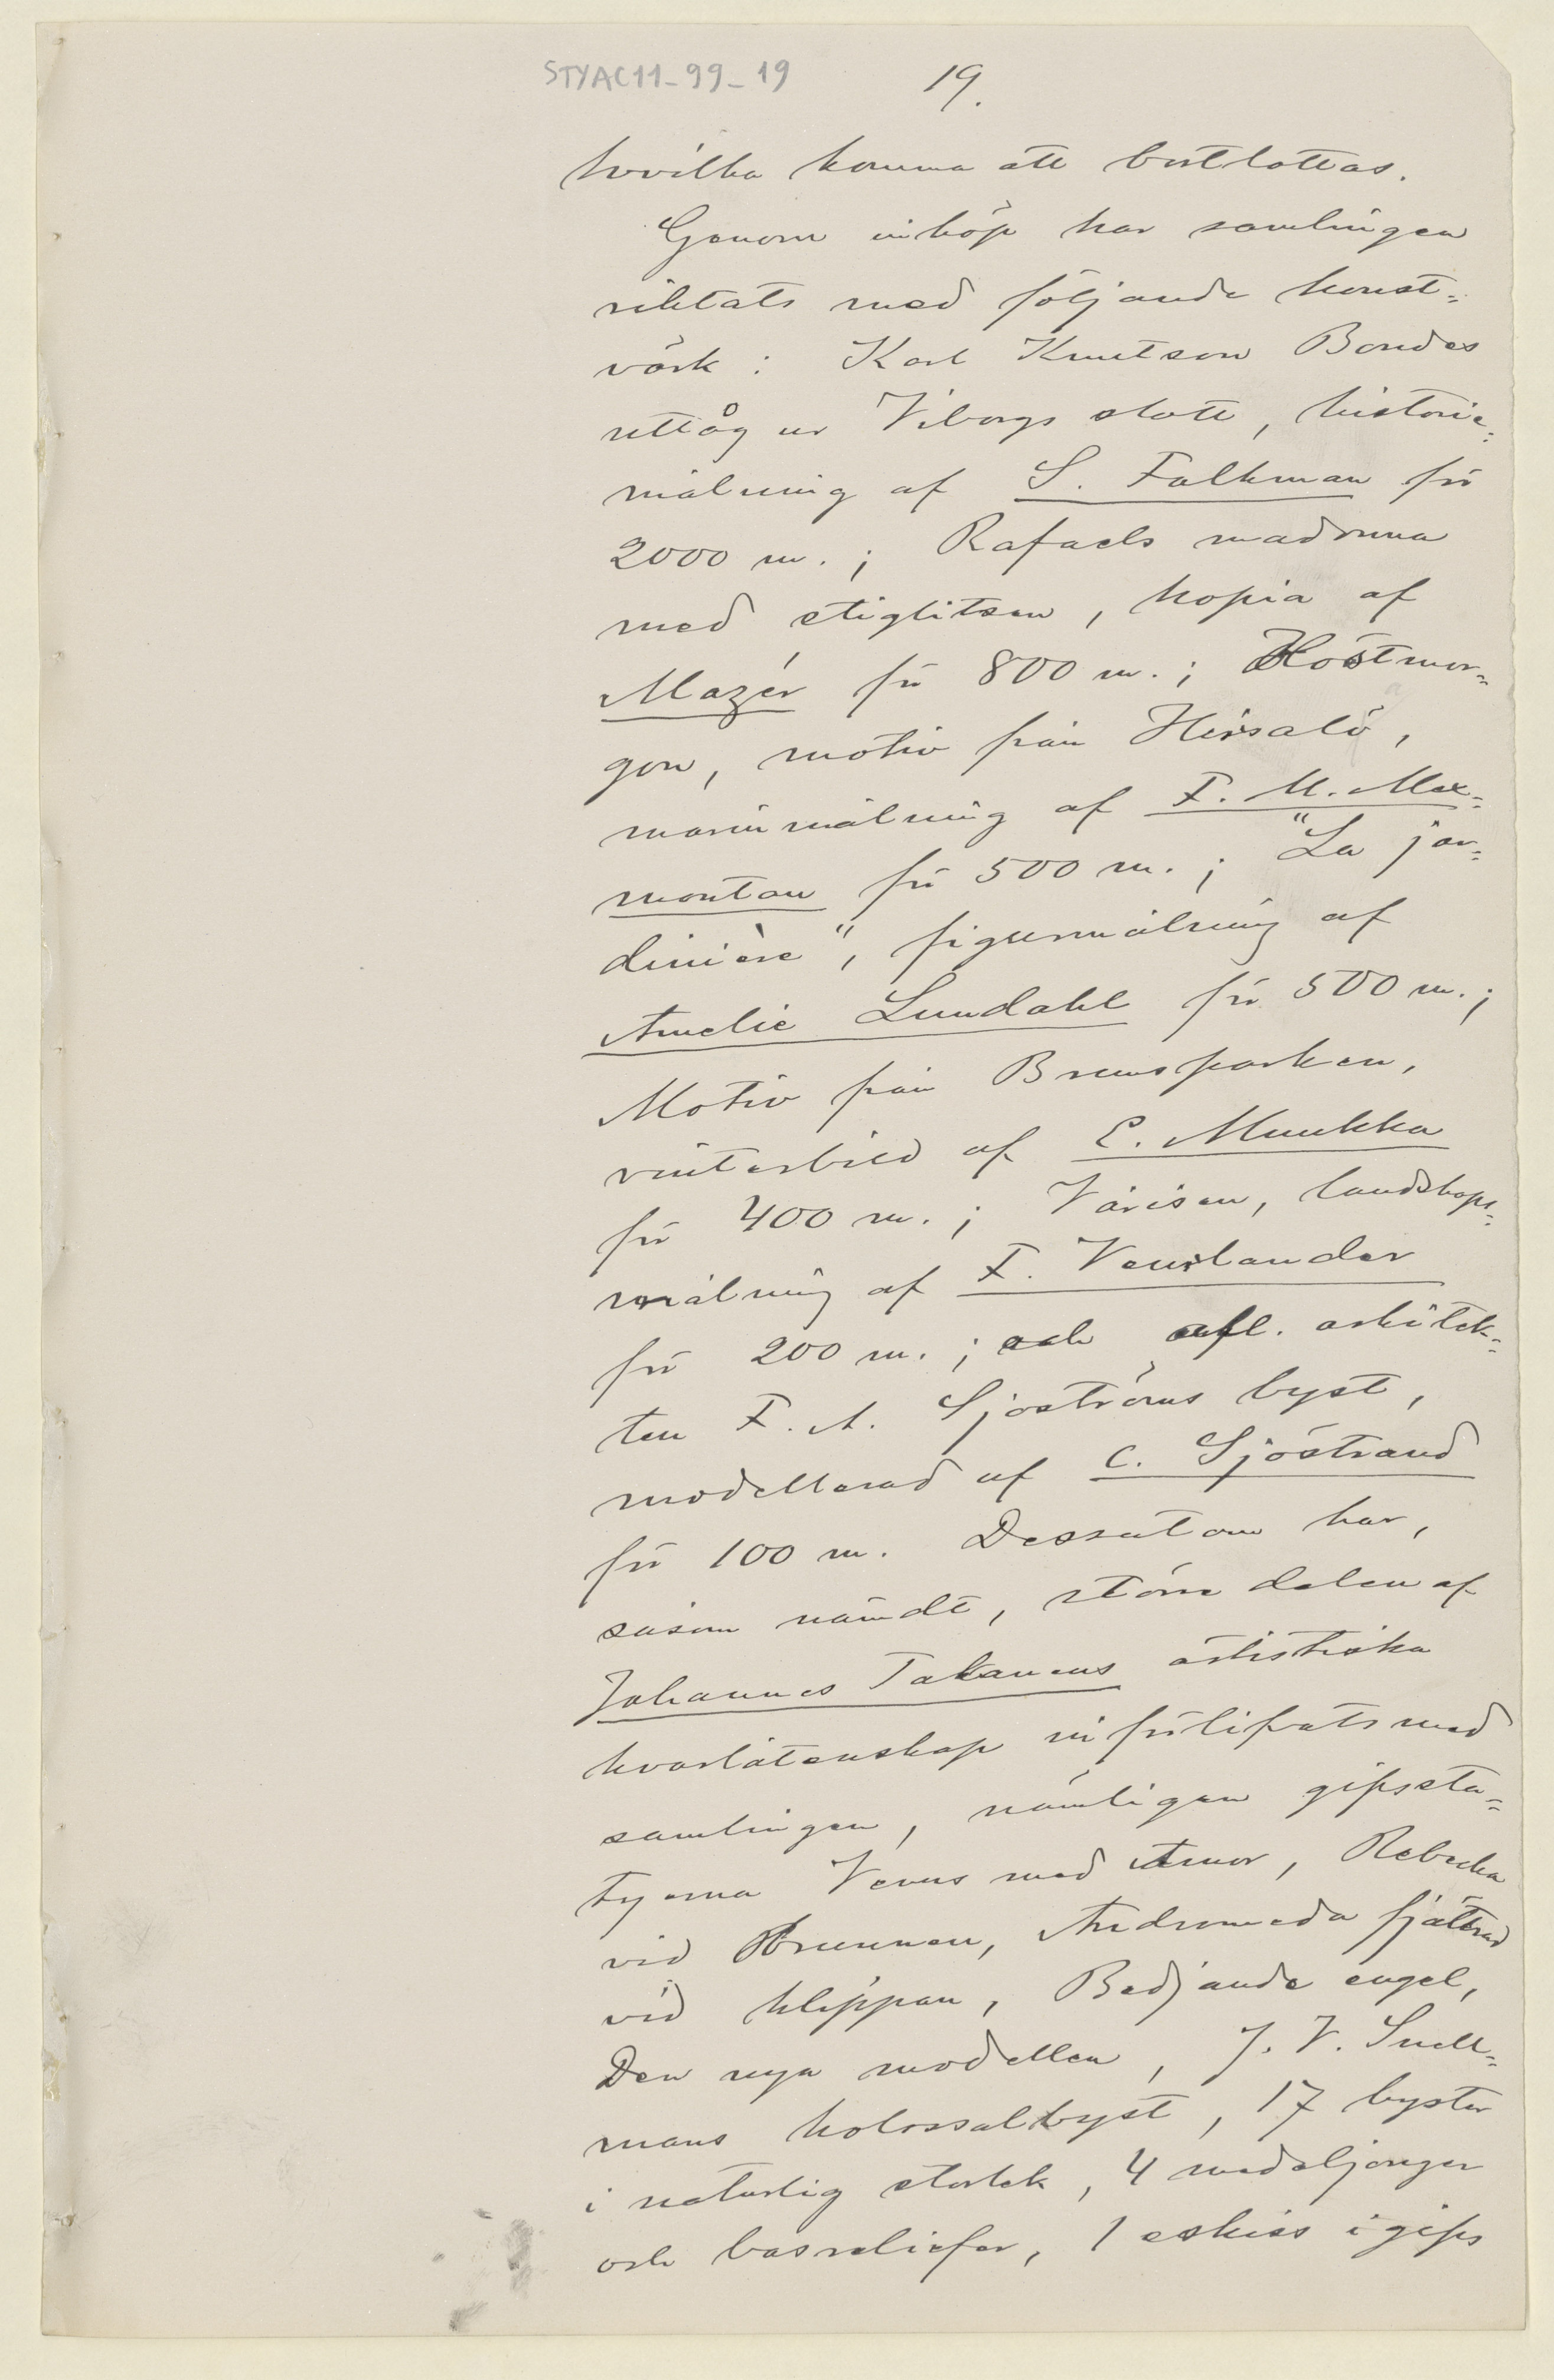 STYAC11-99-19
19.
hvilka komma att bortlottas.
Genom inköp har samlingen
riktats med följande konst=
värk: Karl Knutson Bondes
uttåg ur Viborgs slott, historie=
målning af S. Falkman för
2000 m.; Rafaels madonna
med stiglitsen, kopia af
Mazér för 800 m.; Höstmor=
gon, motiv från Hirsalö,
marinmålning af F. M. Max=
montan för 500 m.; "La jar=
dinière", figurmålning af
Amelie Lundahl för 500 m.;
Motiv från Brunsparken,
vinterbild af E. Muukka
för 400 m.; Vårisen, landskaps=
målning af F. Vennlander
för 200 m.; och afl. arkitek=
ten F. A. Sjöströms byst,
modellerad af C. Sjöstrand
för 100 m. Dessutom har,
såsom nämdt, större delen af
Johannes Takanens artistiska
kvarlåtenskap införlifvats med
samlingen, nämligen gipssta=
tyerna Venus med Amor, Rebecka
vid brunnen, Andromeda fjättrad
vid klippan, Bedjande engel,
Den nya modellen, J. V. Snell=
mans kolossalbyst, 17 byster
i naturlig storlek, 4 medaljonger
och basreliefer, 1 eskiss i gips